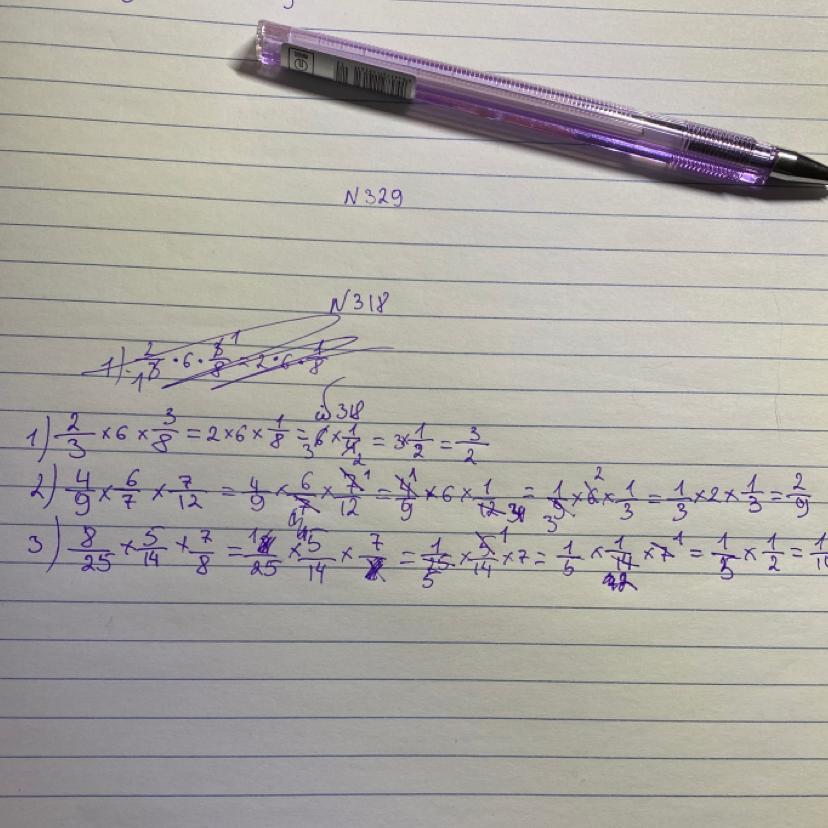 N329
N318
1) 2/3 · 6 · 3/8 = 2 · 6 · 1/8
N318
1) 2/3 × 6 × 3/8 = 2 × 6 × 1/8 = 6 × 1/4 = 3 × 1/2 = 3/2
2) 4/9 × 6/7 × 7/12 = 4/9 × 6/7 × 7/12 = 4/9 × 6 × 1/12 = 1/9 × 6 × 1/3 = 1/3 × 2 × 1/3 = 2/9
3) 8/25 × 5/14 × 7/8 = 1/25 × 5/14 × 7 = 1/25 × 5/14 × 7 = 1/5 × 1/14 × 7 = 1/5 × 1/2 = 1/10